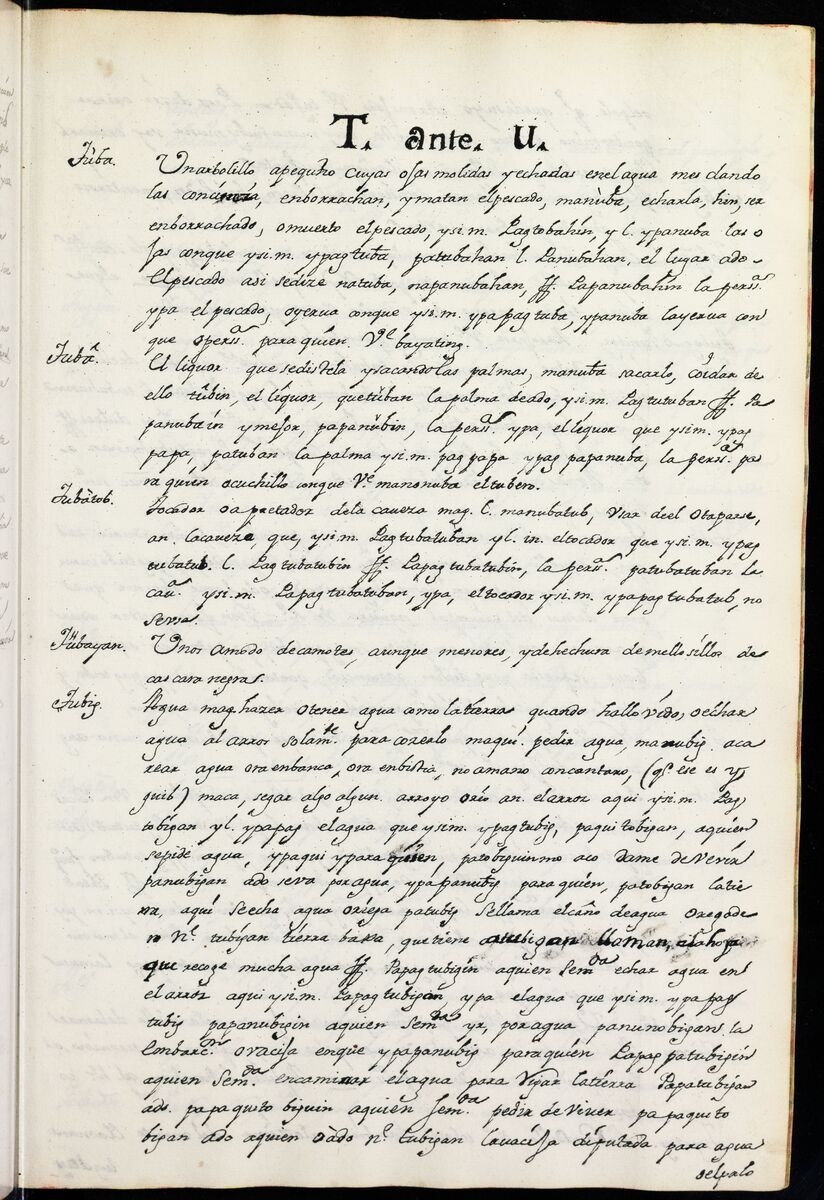 T. ante. U.
Tûba. Un arbolillo apequño cuyas ojas molidas y echadas enel agua mesclando
las con, enborrachan, y matan el pescado, manùba, echarla, hin, ser
enborrachado, o muerto el pescado, y si.m. Pagtobahin, y l. ypanuba las o
jas conque ysi.m. ypagtuba, patubahan l. Panubahan, el lugar ado
El pescado asi sedize natuba, napanubahan, ff. Papanubahin la pers.a
ypa el pescado, oyerua conque ysi.m. ypapagtuba, ypanuba layerua con
que o pers.a para quien. V.e bayating.
Tubâ. El liquor que sedistela ysacandolas palmas, manuba sacarlo, coidar de
ello tûbin, el liquor, quetûban la palma deado, ysi.m. Pagtutuban ff. Pa
panubain y mejor, papanûbin, la pers.a ypa, el liquor que ysi.m. ypag
papa, patuban la palma ysi.m. pagpapa ypag papanuba, la pers.a pa
ra quien o cuchillo conque V.e manonuba el tubero.
Tubàtob. Tocador o apretador dela caueza mag. l. manubatub, vsar deel otaparse,
an. lacaueze que, ysi.m. Pagtubatuban y l. in. eltocador que ysi.m. ypag
tubatub. l. Pagtubatubin ff. Papagtubatubin, la pers.a patubatuban la
cau.a ysi.m. Papagtubatuban, ypa, eltocador ysi.m. ypapagtubatub, no
sevsa.
Tûbayan. Unos amodo decamotes, aunque menores, y de hechura de mellosillos de
cascara negra.
Tubig. Agua mag. hazer otener agua como latierra quando hallovido, oechar
agua al arros solam.te para cozerlo maqui. pedir agua, manubig. aca
rear agua ora enbanca, ora enbistia, no amano concantaro, (q.e ese es yg
guib) maca, segar algo algun. arroyo orio an. el arroz aqui ysi.m. Pag
tobigan y l. ypapag el agua que ysim. ypagtubig, paquitobigan, aquien
sepide agua, ypaqui ypara quien, patobiguinmo aco dame de veuir
panubigan ado seva por agua, ypapanubig para quien, patobigan latie
rra, aqui seecha agua oriega patubig sellama el caño deagua oregode
ro N.e tubigan tierra baxa, que tiene
que recoge mucha agua ff. Papagtubigin aquien sem.da echar agua en
el arroz aqui ysi.m. Papagtubigan y ypa el agua que ysi.m. ypapag
tubig papanubigin aquien sem.da yr, por agua panunobigan. la
Embarc.on ovacija enque ypapanubig paraquien Papagpatubigin
aquien sem.da encaminar el agua para Vigar latierra Papatubigan
ado. papaquitobiguin aquien sem.da pedir de vever papaquito
bigan ado aquien oado N.e tubigan lauacija diputada para agua
oelpalo